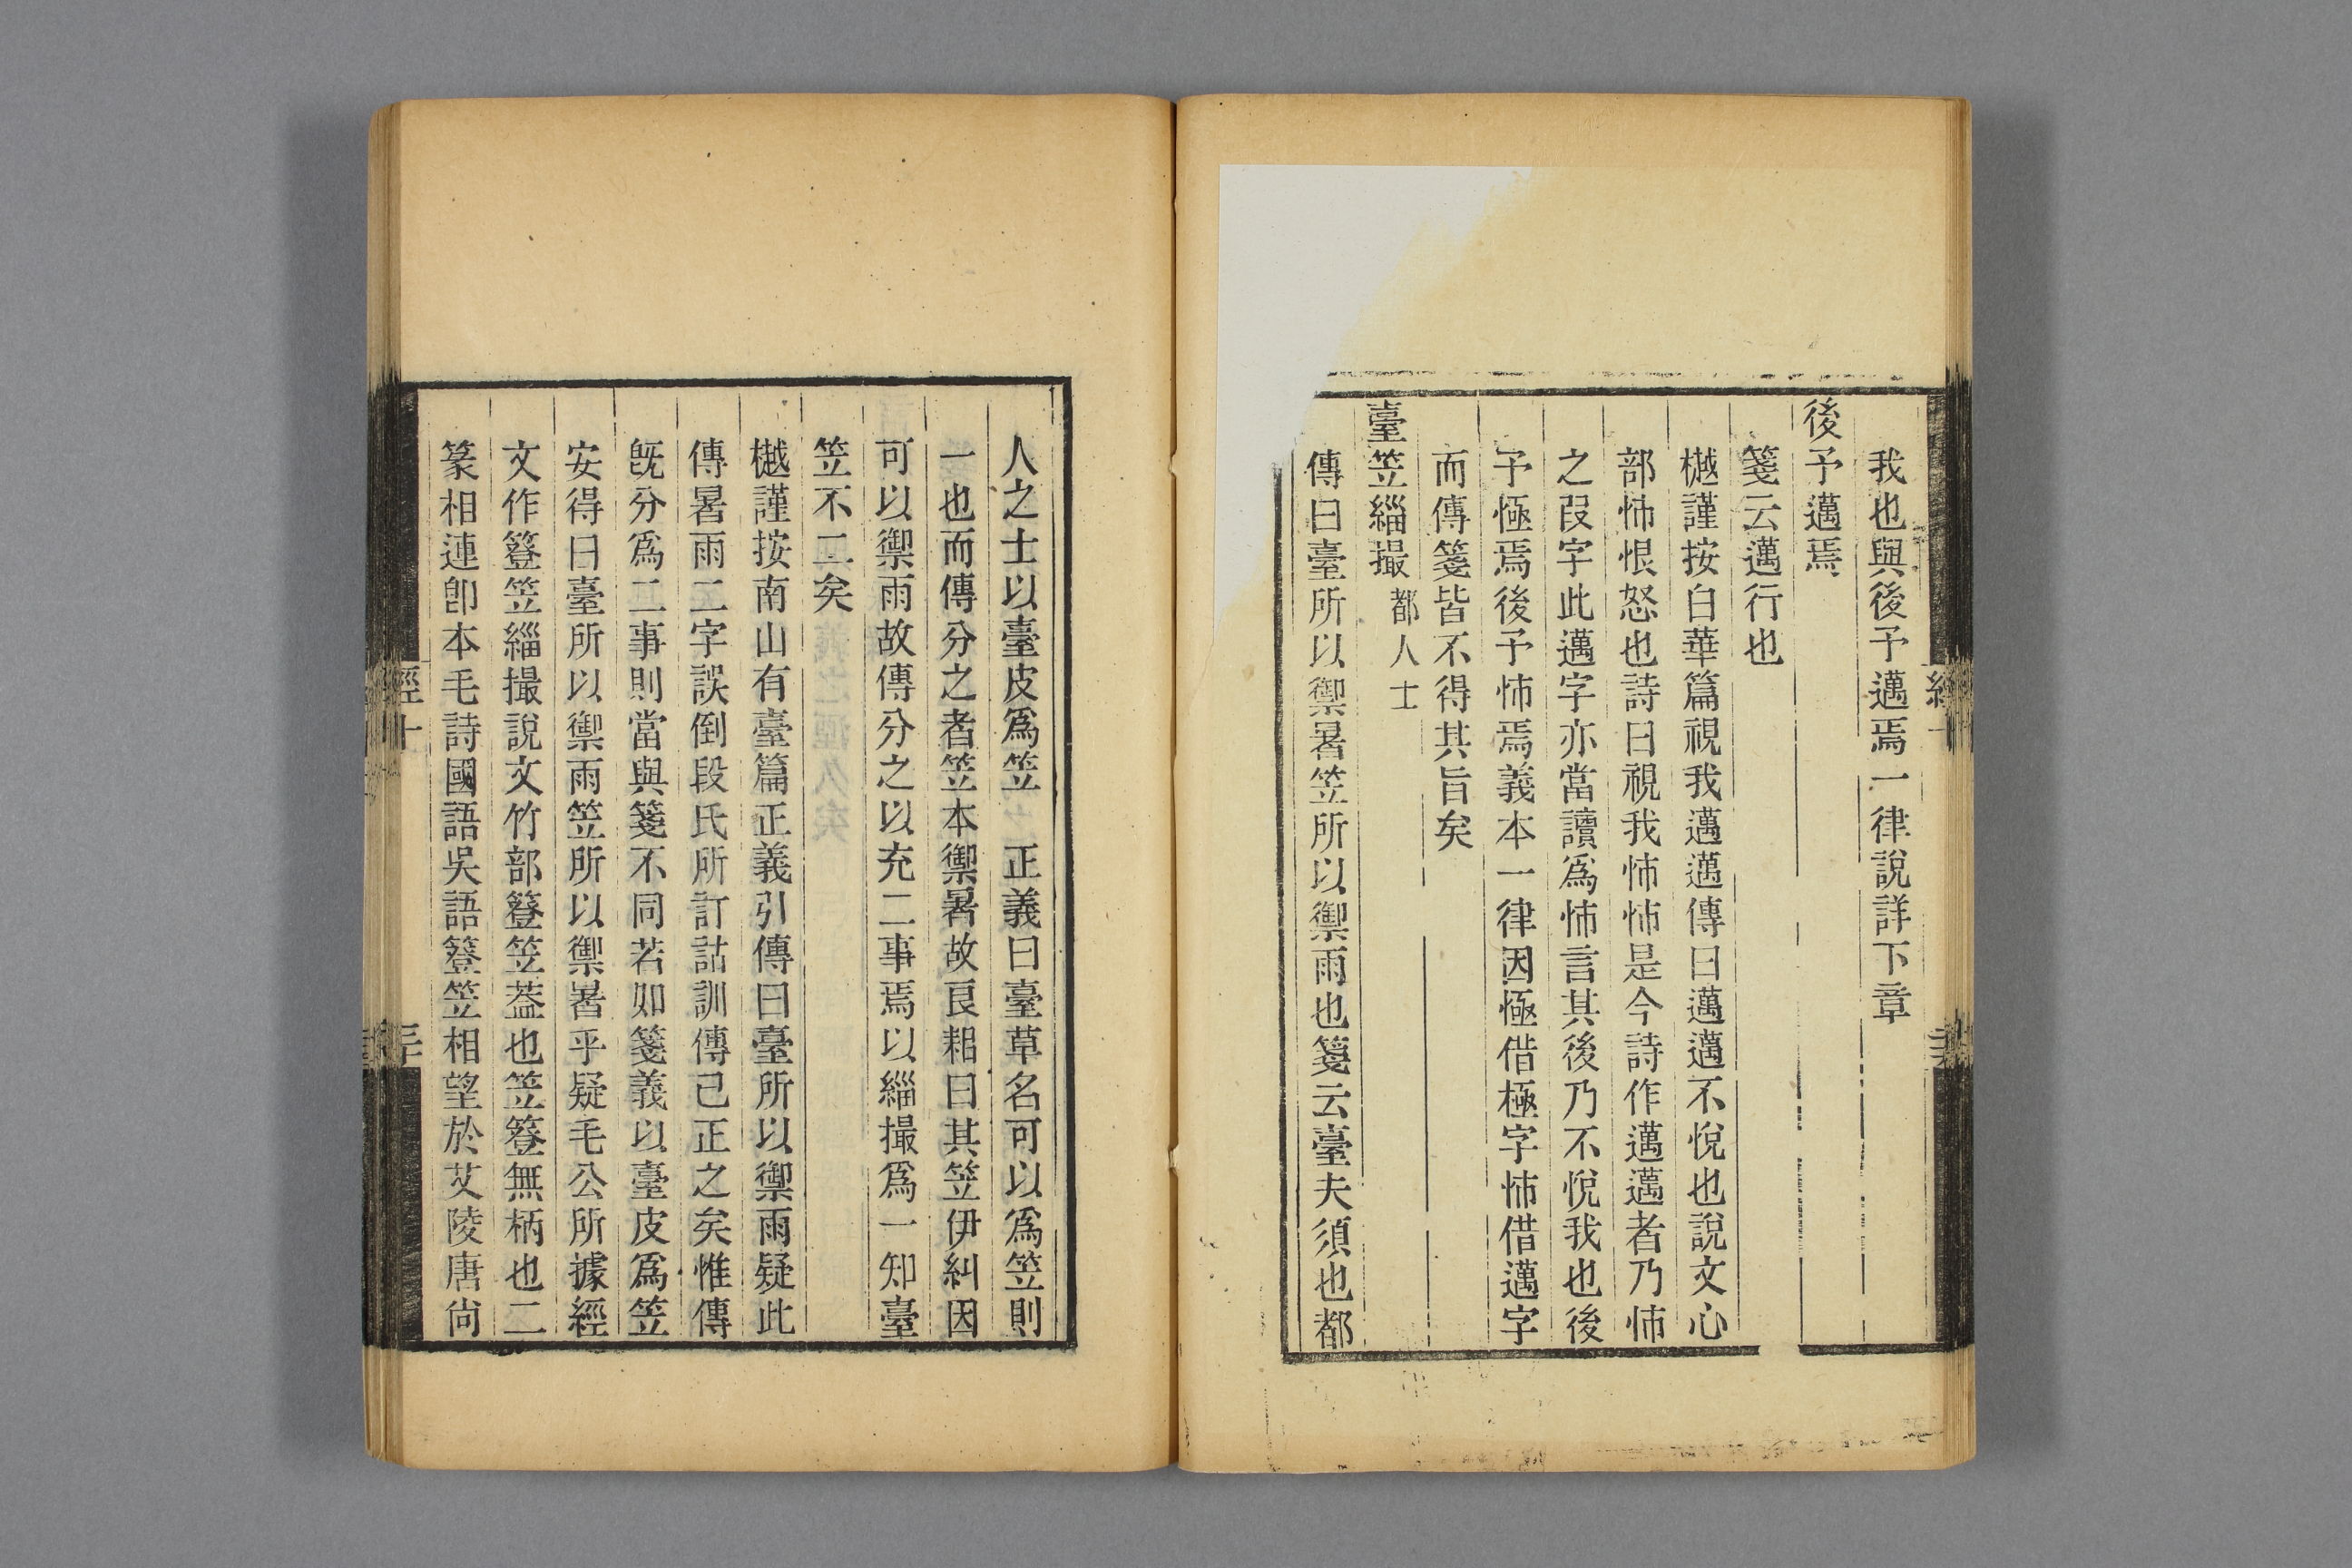 我也與後予邁焉一律說詳下章
後予邁焉
箋云邁行也
樾謹按白華篇視我邁邁傳曰邁邁不悅也說文心
部怖恨怒也詩曰視我怖怖是今詩作邁邁者乃怖
之叚字此邁字亦當讀爲怖言其後乃不悅我也後
予極焉後予怖焉義本一律因極借極字怖借邁字
而傳箋皆不得其旨矣
臺笠緇撮 都人士
傳曰臺所以禦暑笠所以禦雨也箋云臺夫須也都
人之士以臺皮爲笠 正義曰臺草名可以爲笠則
一也而傳分之者笠本禦暑故良耜曰其笠伊糾因
可以禦雨故傳分之以充二事焉以緇撮爲一知臺
笠不二矣
樾謹按南山有臺篇正義引傳曰臺所以禦雨疑此
傳暑雨二字誤倒段氏所訂詁訓傳已正之矣惟傳
旣分爲二事則當與箋不同若如箋義以臺皮爲笠
安得曰臺所以禦雨笠所以禦暑乎疑毛公所據經
文作簦笠緇撮說文竹部簦笠蓋也笠簦無柄也二
篆相連卽本毛詩國語吳語簦笠相望於艾陵唐尙
經十